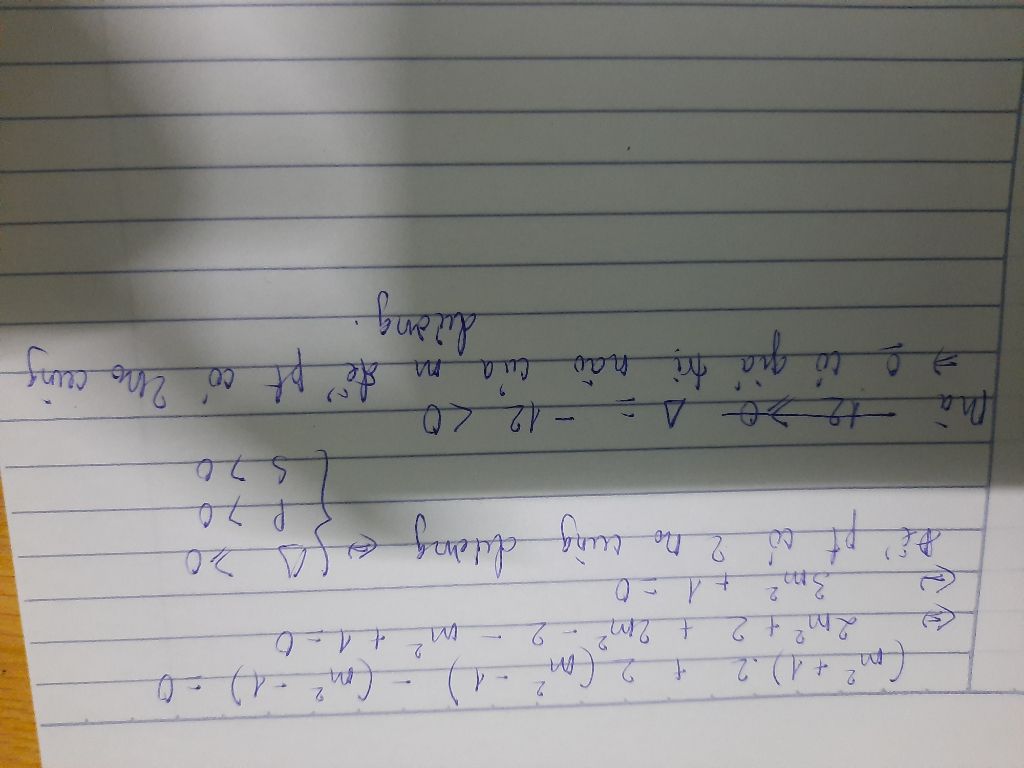 (m² + 1) 2 + 2 (m² - 1) - (m² - 1) = 0
⇔ 2m² + 2 + 2m² - 2 - m² + 1 = 0
⇔ 3m² + 1 = 0
Để pt có 2 no cùng dương ⇔ { Δ ≥ 0
P > 0
S > 0
Mà 12 ≥ 0 Δ = - 12 < 0
⇒ 0 có giá trị nào của m để pt có 2 no cùng
dương.